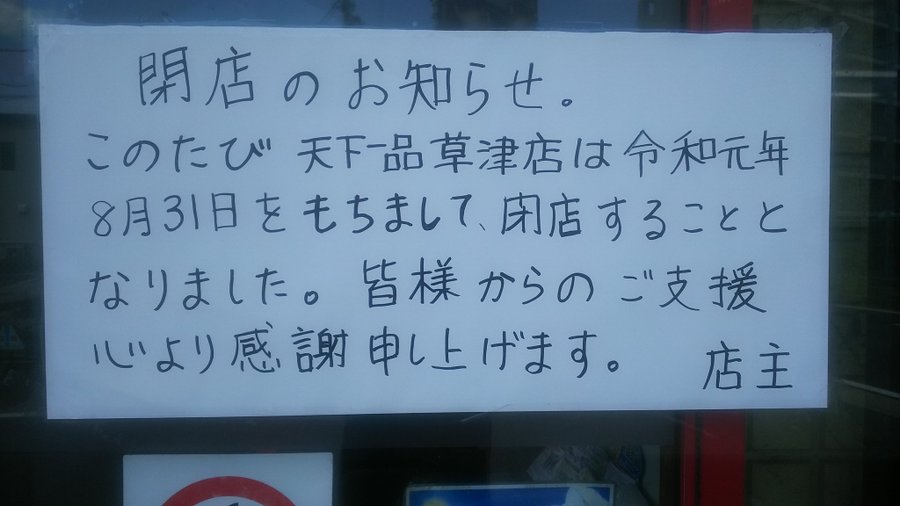 閉店のお知らせ。
このたび 天下一品草津店は令和元年
8月31日をもちまして、閉店することと
なりました。皆様からのご支援
心より感謝申し上げます。 店主